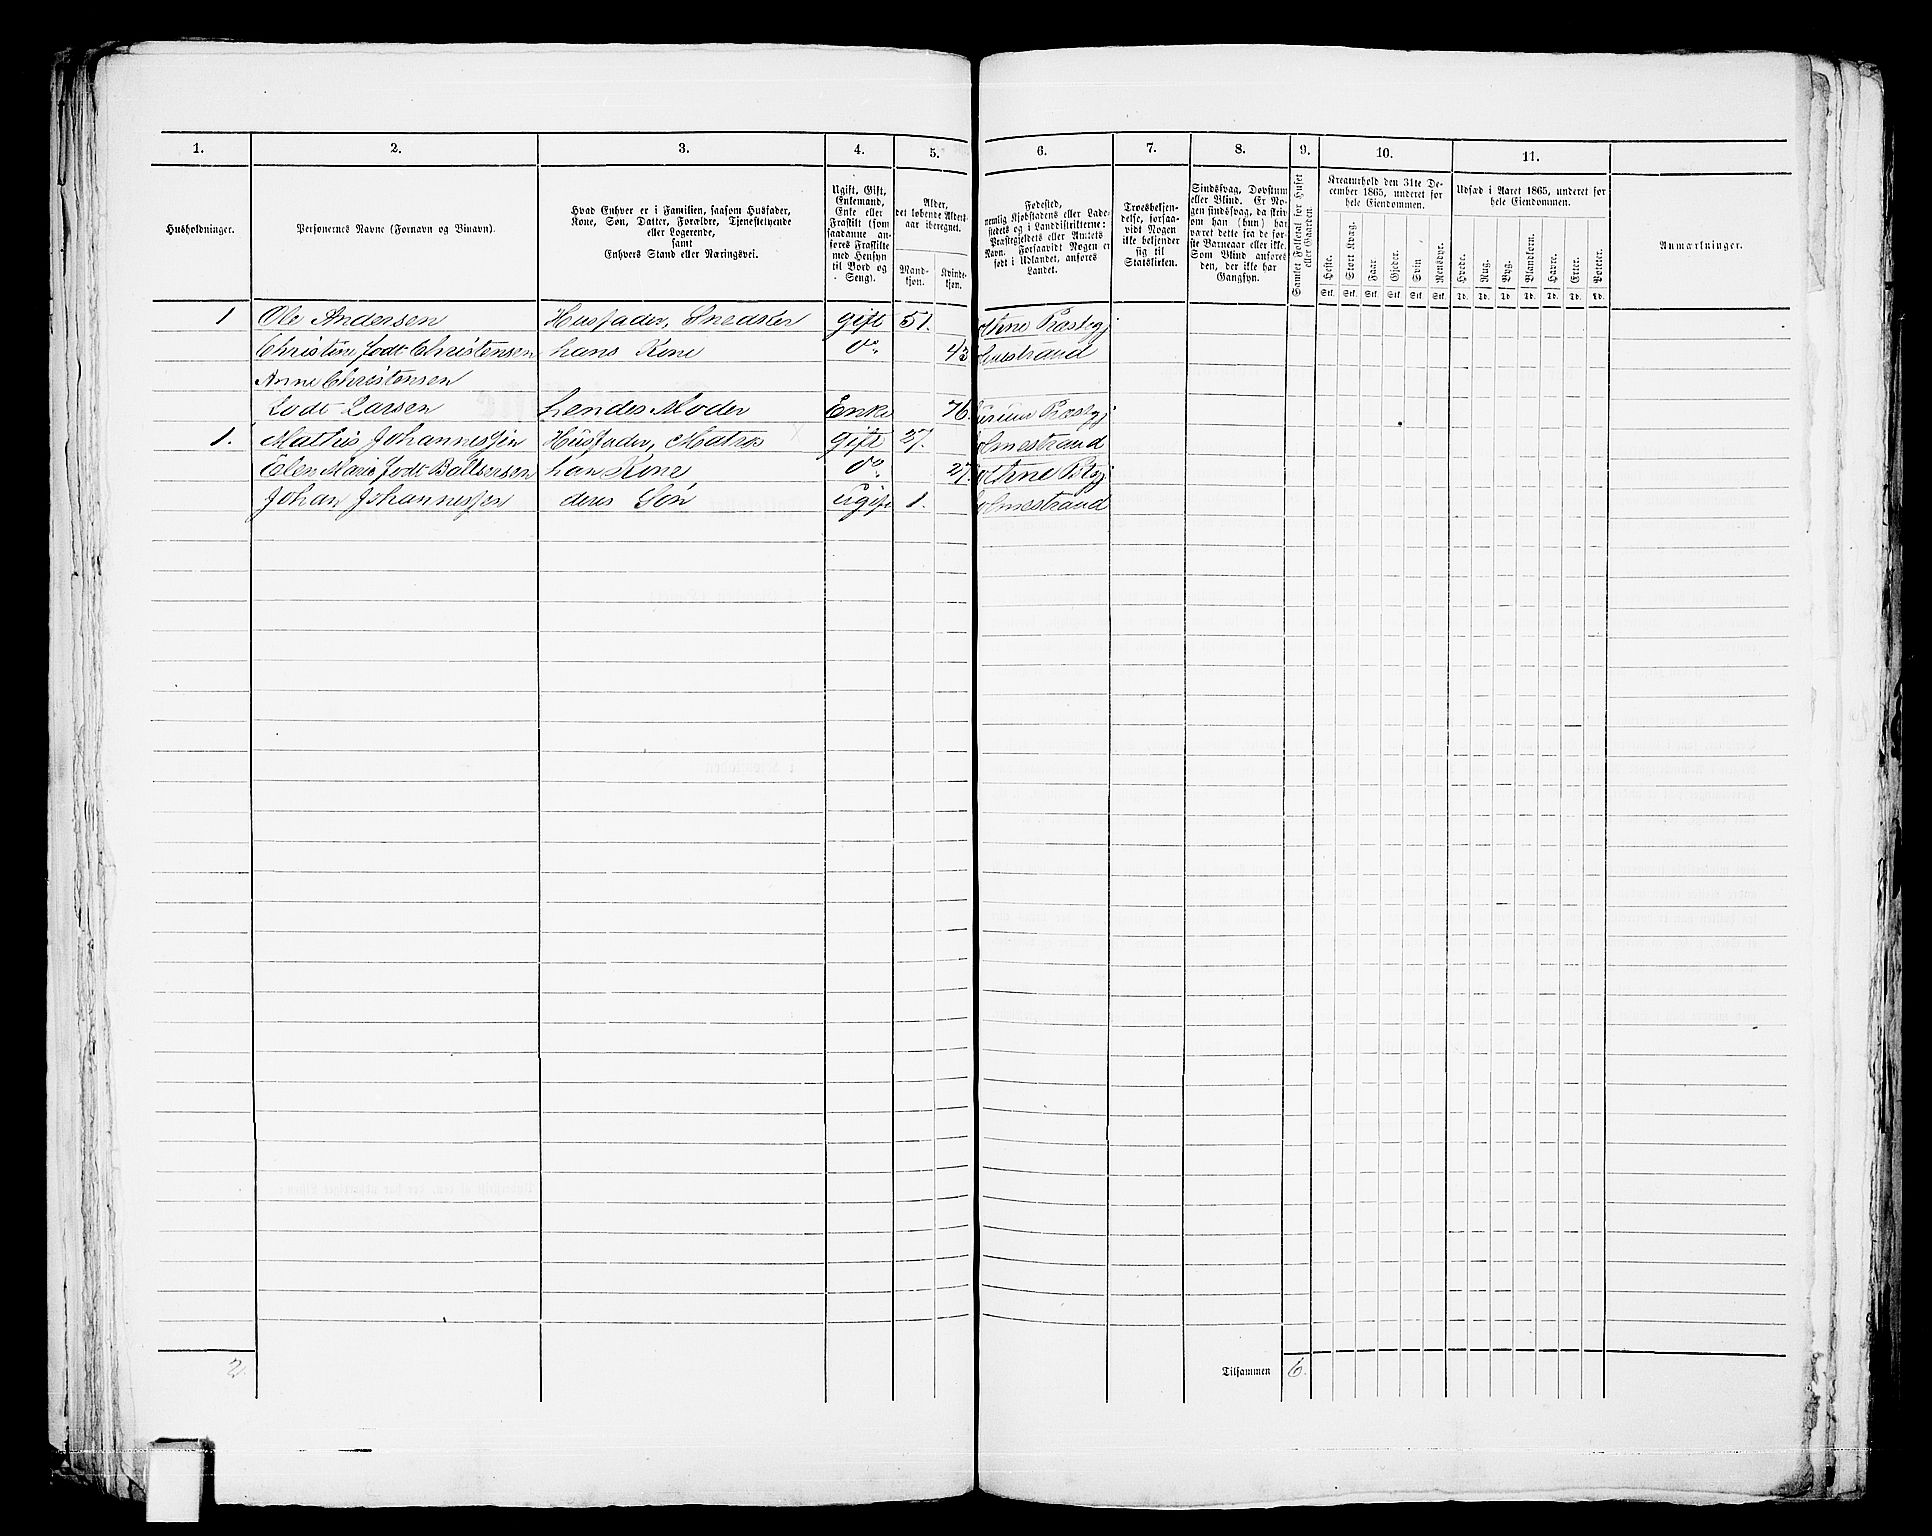 1. 2. 3. 4. 5. 6. 7. 8. 9. 10. 11.
Husholdninger.
Personernes Navne (Fornavn og Binavn).
Hvad Enhver er i Familien, saasom Husfader,
Kone, Søn, Datter, Forældre, Tjenestetyende
eller Logerende,
samt
Enhvers Stand eller Næringsvei.
Ugift, Gift,
Enkemand,
Enke eller
Fraskilt (som
saadanne an-
føres Fraskilte
med Hensyn
til Bord og
Seng).
Alder,
det løbende Alders-
aar iberegnet.
Mand-
kjøn.
Kvinde-
kjøn.
Fødested,
nemlig Kjøbstadens eller Lade-
stedets og i Landdistrikterne:
Præstegjeldets eller Amtets
Navn. Forsaavidt Nogen er
født i Udlandet, anføres
Landet.
Troesbekjen-
delse, forsaa-
vidt Nogen
ikke bekjender
sig til
Statskirken.
Sindssvag, Døvstum
eller Blind. Er No-
gen sindssvag, da skriv
om han (hun) har
været dette fra de før-
ste Barneaar eller ikke.
Som Blind anføres
den, der ikke har
Gangsyn.
Samlet Folketal for Huset
eller Gaarden.
Kreaturhold den 31te De-
cember 1865, underet for
hele Eiendommen.
Heste. Stort Kvæg. Faar. Gjeder. Svin. Rensdyr.
Stk. Stk. Stk. Stk. Stk. Stk.
Udsæd i Aaret 1865, underet for
hele Eiendommen.
Hvede. Rug. Byg. Blandkorn. Havre. Erter. Poteter.
Td. Td. Td. Td. Td. Td. Td.
Anmærkninger.
1 Ole Andersen Husfader, Snedker gift 51. Præstegj
Christine født Christensen hans Kone do. 43 olmestrand
Anne Christensen
født Larsen hendes Moder Enke 76. Præstegj
1. Mathis Johannessen Husfader, Matros gift 27. olmestrand
Elen Marie født Baltsersen han Kone do. 27.
Johan Johannessen deres Søn ugift 1. olmestrand
2. Tilsammen 6.